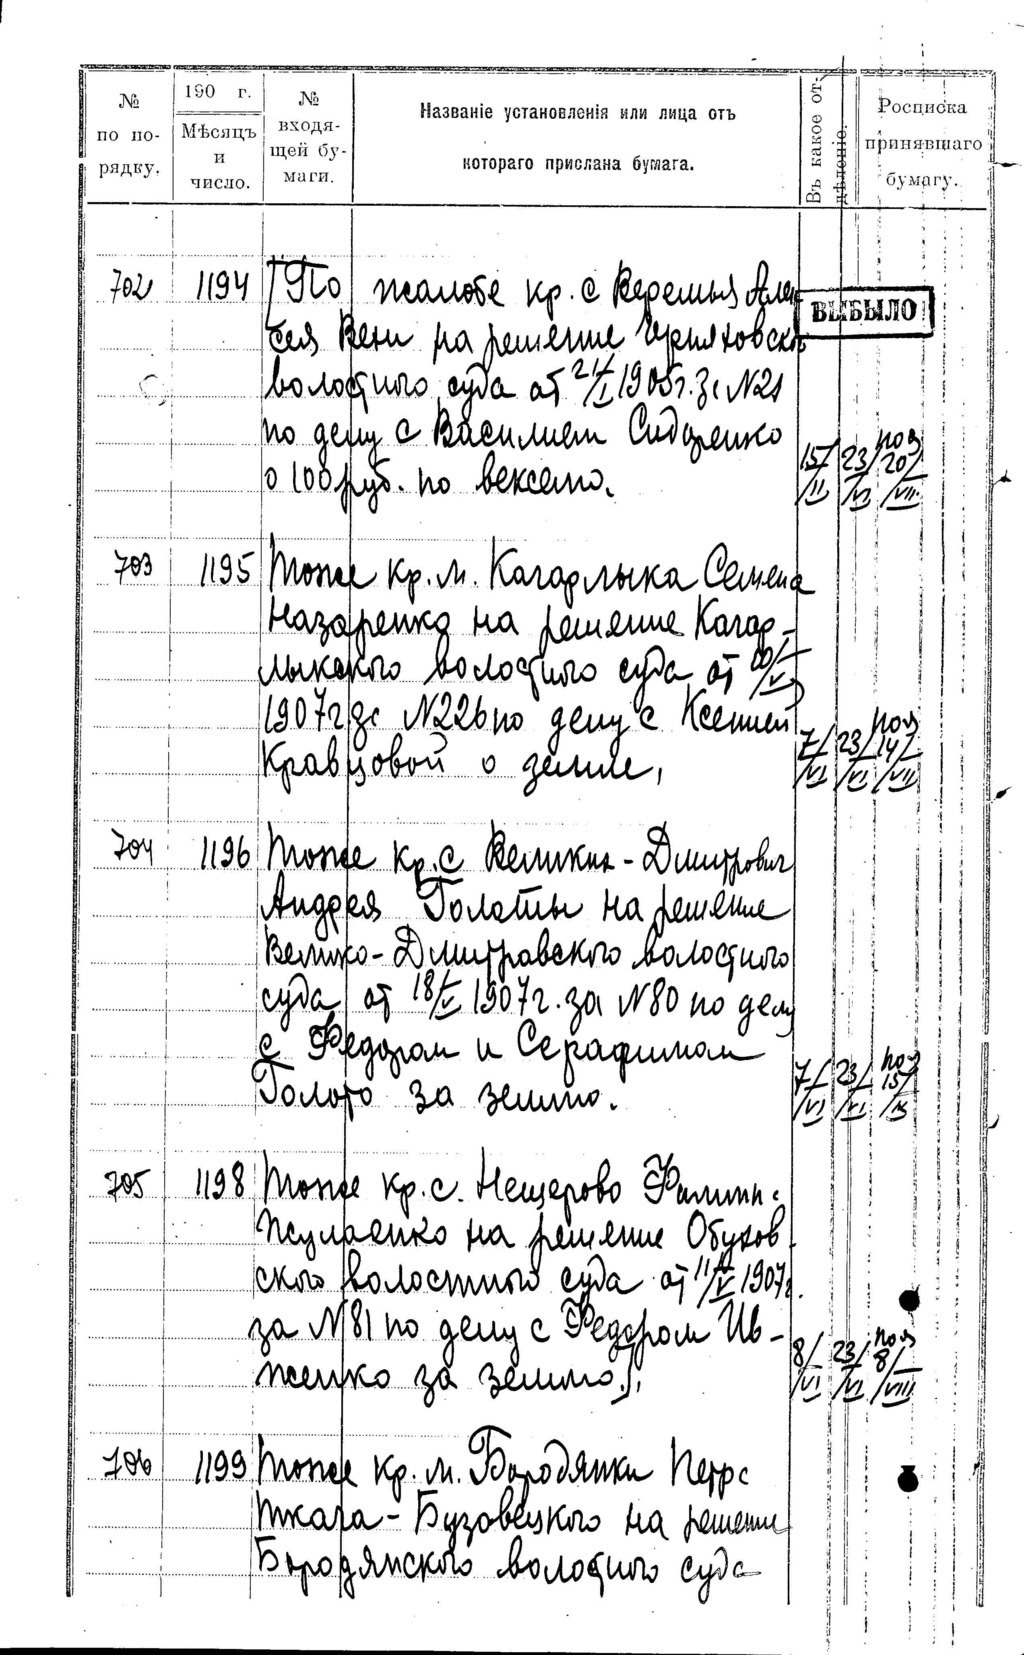 № по по-рядку.
190 г. Мѣсяцъ и число.
№ входя-щей бу-маги.
Названіе установленія или лица отъ
котораго прислана бумага.
Въ какое от-дѣленіе.
Росписка принявшаго бумагу.
702 1194 По жалобе кр. с Веремья Але
ВЫБЫЛО
сея Вени на решение Черняховско
волостного суда от 21/I 1905г. за №21
по делу с Василием Сидоренко
о 100 руб. по векселю.
15/II 23/VI 20/VII
703 1195 Тоже кр. м. Кагарлыка Семена
Назаренко на решение Кагар-
лыкского волостного суда от
1907г за №226 по делу с Ксенией
Кравцовой о земле,
7/VI 23/VI 14/VII
704 1196 Тоже кр. с Велики-Дмитрович
Андрея Голоты на решение
Велико-Дмитровского волостного
суда от 18/V 1907г. за №80 по делу
с Федором и Серафимом
Голото за землю.
7/VI 23/VI 15/IX
705 1198 Тоже кр. с. Нещерово Филипп
на решение Обухов
ского волостного суда от 11/V 1907г.
за №81 по делу с Федором Ив-
женко за землю,
8/VI 23/VI 8/VIII
706 1199 Тоже кр. м. Бородянки Петра
Ткача-Бузовецкого на решение
Бородянского волостного суда